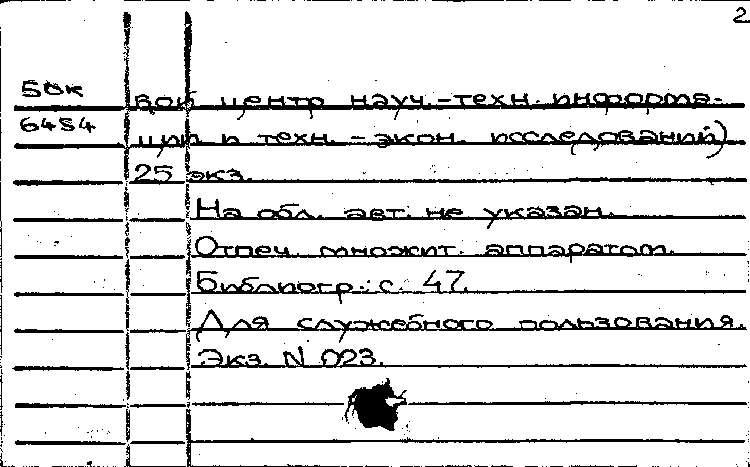 2
50к
вой центр науч.-техн. информа-
6484
ции и техн.-экон. исследований)
25 экз.
На обл. авт. не указан.
Отпеч. множит. аппаратом.
Библиогр.: с. 47.
Для служебного пользования.
Экз. N 023.